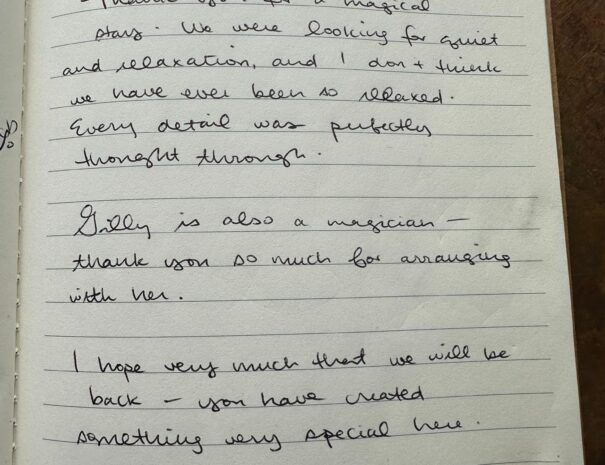 Thank you for a magical
stay. We were looking for quiet
and relaxation, and I don't think
we have ever been so relaxed.
Every detail was perfectly
thought through.
Gilly is also a magician –
thank you so much for arranging
with her.
I hope very much that we will be
back – you have created
something very special here.